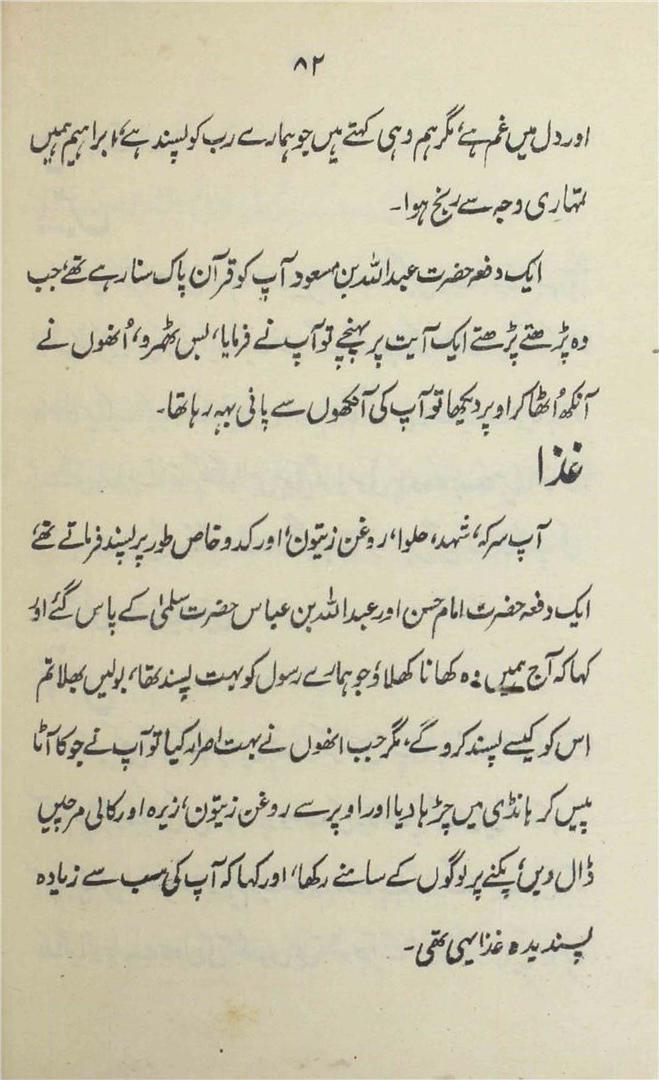 ۸۲
اور دل میں غم ہے، مگر ہم وہی کہتے ہیں جو ہمارے رب کو پسند ہے، ابراہیم ہمیں
تمہاری وجہ سے رنج ہوا۔
ایک دفعہ حضرت عبداللہ بن مسعود آپ کو قرآن پاک سنا رہے تھے، جب
وہ پڑھتے پڑھتے ایک آیت پر پہنچے تو آپ نے فرمایا، بس ٹھہرو، اُنھوں نے
آنکھ اُٹھا کر اوپر دیکھا تو آپ کی آنکھوں سے پانی بہہ رہا تھا۔
غذا
آپ سرکہ، شہد، حلوا، روغن زیتون، اور کدو خاص طور پر پسند فرماتے تھے،
ایک دفعہ حضرت امام حسن اور عبداللہ بن عباس حضرت سلمیٰ کے پاس گئے اور
کہا کہ آج ہمیں وہ کھانا کھلاؤ جو ہمارے رسول کو بہت پسند تھا، بولیں بھلا تم
اس کو کیسے پسند کرو گے، مگر جب انھوں نے بہت اصرار کیا تو آپ نے جو کا آٹا
پیس کر ہانڈی میں چڑھا دیا اور اوپر سے روغن زیتون، زیرہ اور کالی مرچیں
ڈال دیں، پکنے پر لوگوں کے سامنے رکھا، اور کہا کہ آپ کی سب سے زیادہ
پسندیدہ غذا یہی تھی۔